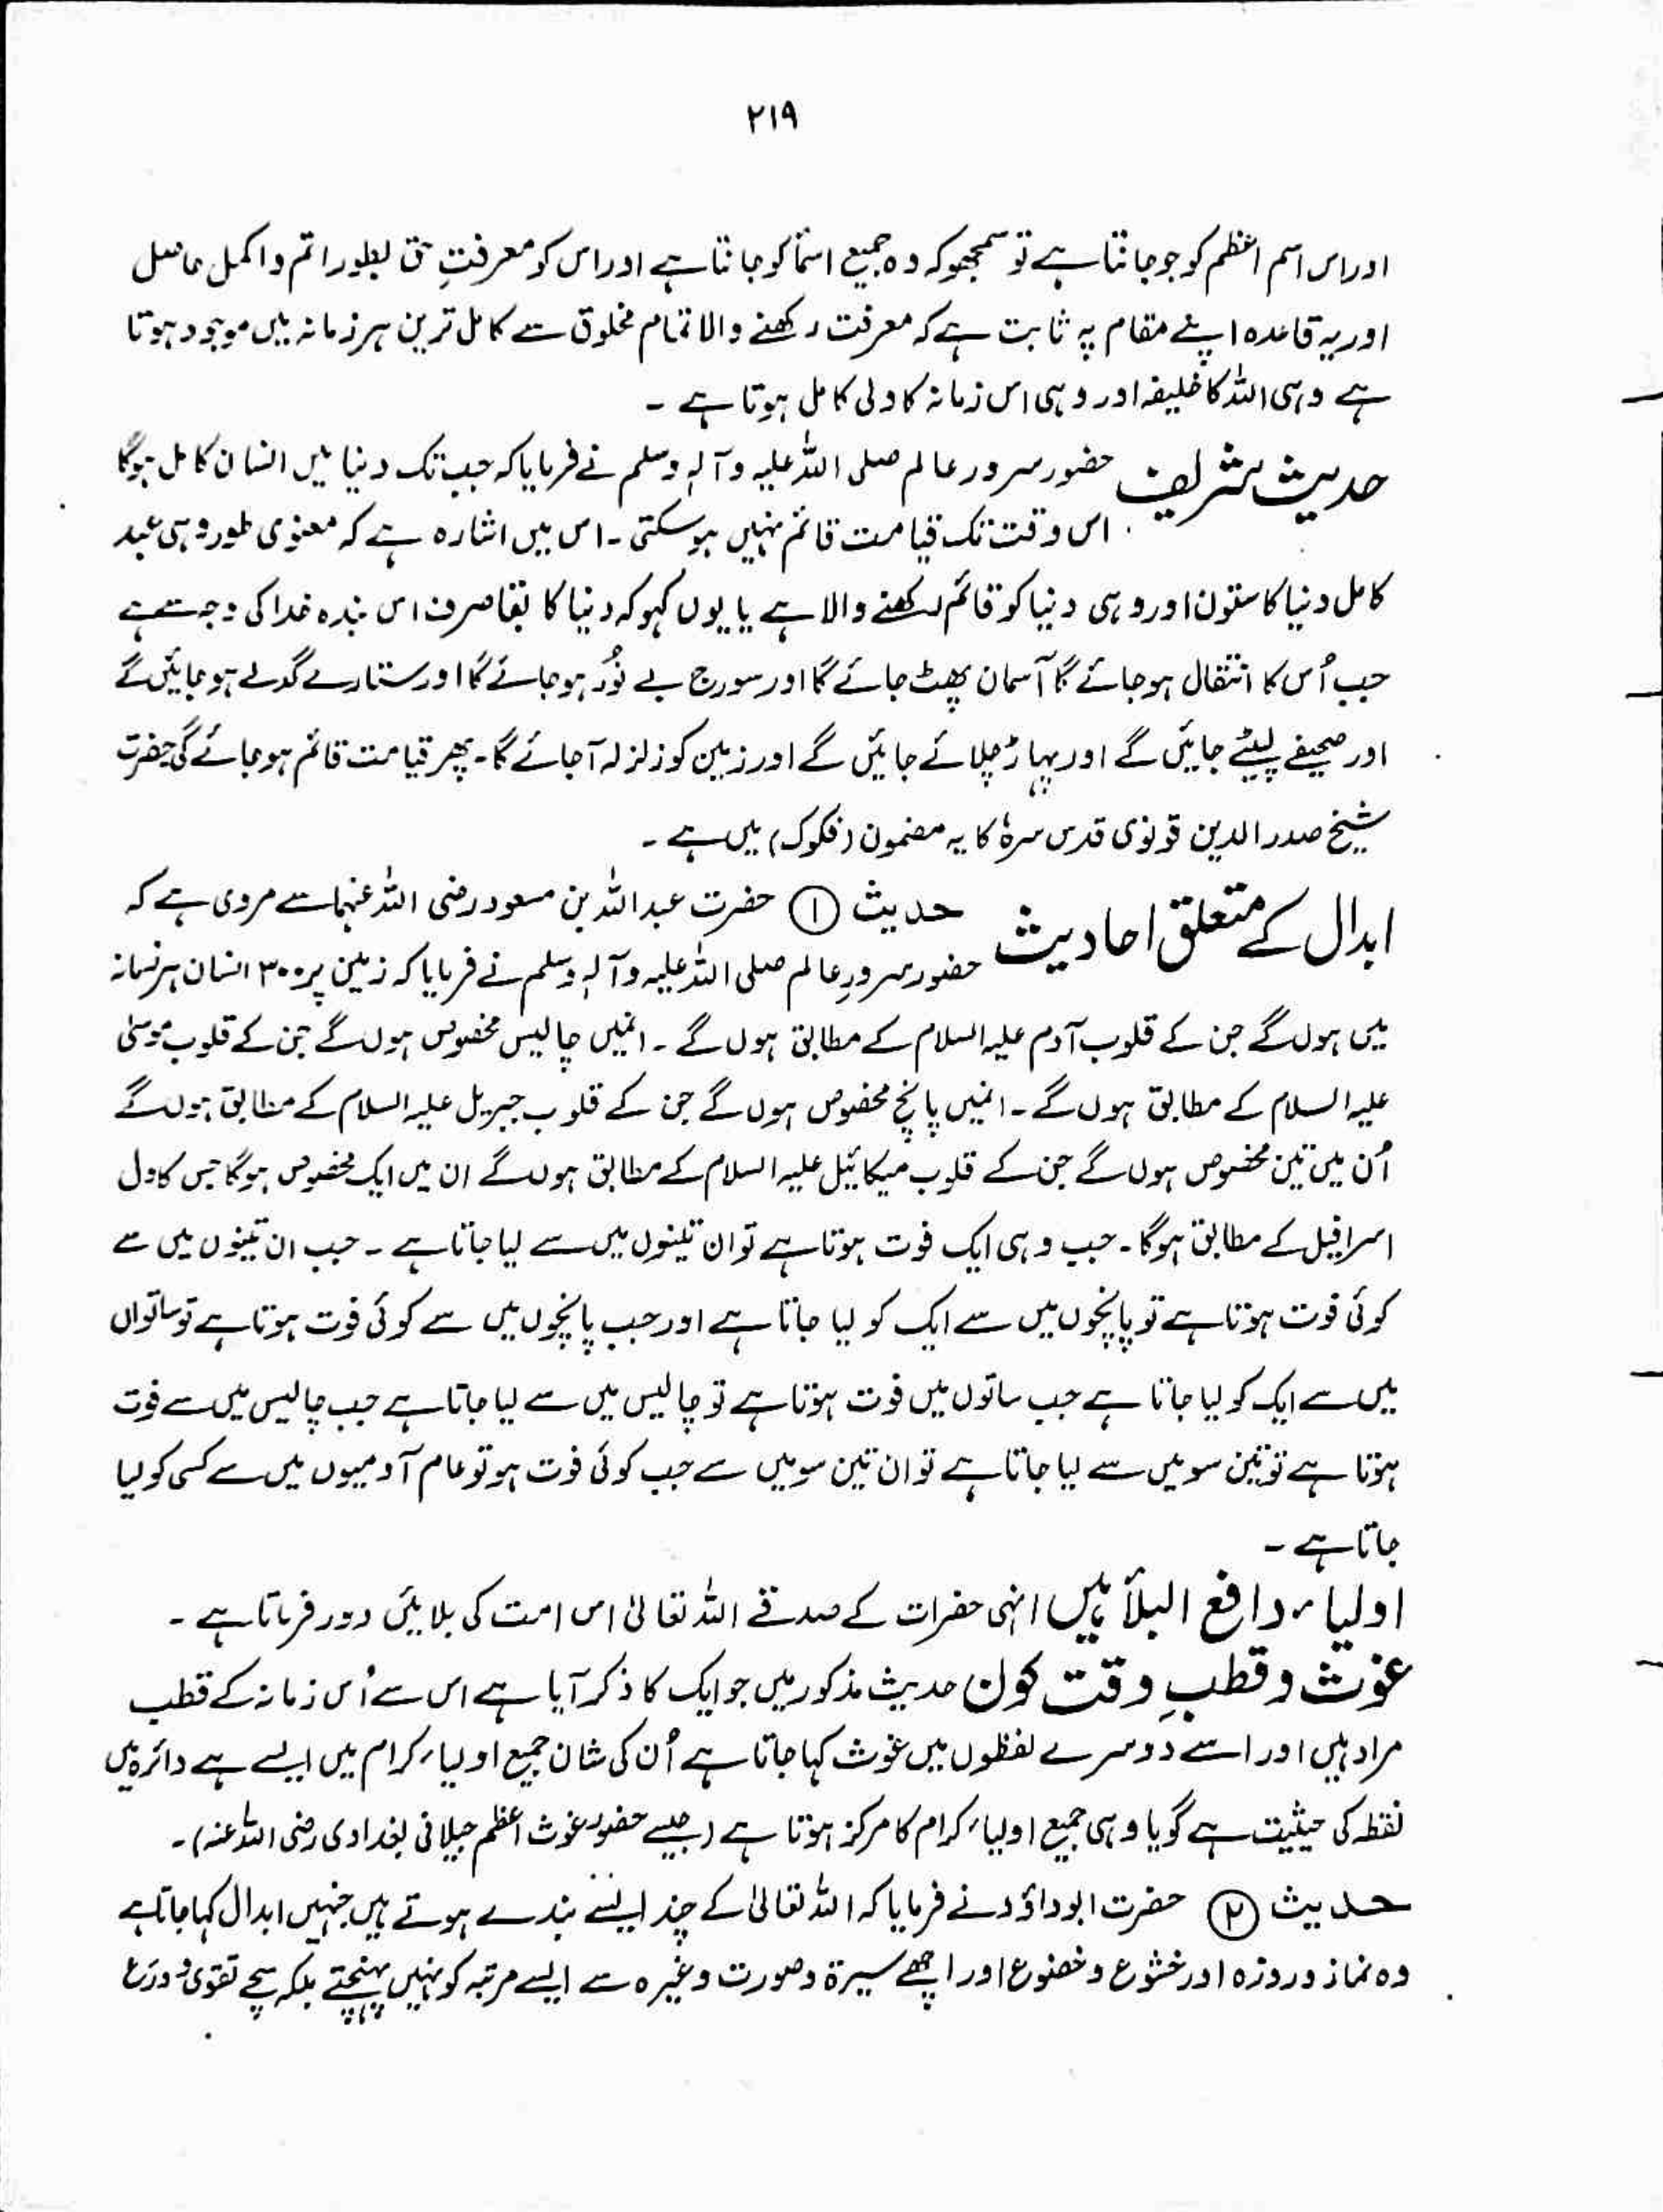 ۲۱۹
اور اس اسم اعظم کو جو جانتا ہے تو سمجھو کہ وہ جمیع اسمأ کو جانتا ہے اور اس کو معرفتِ حق بطور اتم و اکمل حاصل
اور یہ قاعدہ اپنے مقام پہ ثابت ہے کہ معرفت رکھنے والا تمام مخلوق سے کامل ترین ہر زمانہ میں موجود ہوتا
ہے وہی اللہ کا خلیفہ اور وہی اس زمانہ کا ولی کامل ہوتا ہے ۔
حدیث شریف حضور سرور عالم صلی اللہ علیہ وآلہٖ وسلم نے فرمایا کہ جب تک دنیا میں انسان کامل ہوگا
اس وقت تک قیامت قائم نہیں ہوسکتی ۔ اس میں اشارہ ہے کہ معنوی طور وہی عبد
کامل دنیا کا ستون اور وہی دنیا کو قائم رکھنے والا ہے یا یوں کہو کہ دنیا کا بقا صرف اس بندہ خدا کی وجہ سے ہے
جب اُس کا انتقال ہو جائے گا آسمان پھٹ جائے گا اور سورج بے نُور ہو جائے گا اور ستارے گدلے ہو جائیں گے
اور صحیفے لپیٹے جائیں گے اور پہاڑ چلائے جائیں گے اور زمین کو زلزلہ آ جائے گا ۔ پھر قیامت قائم ہو جائے گی حضرت
شیخ صدر الدین قونوی قدس سرہٗ کا یہ مضمون (فکوک) میں ہے ۔
ابدال کے متعلق احادیث حدیث ① حضرت عبد اللہ بن مسعود رضی اللہ عنہما سے مروی ہے کہ
حضور سرورِ عالم صلی اللہ علیہ وآلہٖ وسلم نے فرمایا کہ زمین پر ۳۰۰ انسان ہر زمانہ
میں ہوں گے جن کے قلوب آدم علیہ السلام کے مطابق ہوں گے ۔ انمیں چالیس مخصوص ہوں گے جن کے قلوب موسیٰ
علیہ السلام کے مطابق ہوں گے ۔ انمیں پانچ مخصوص ہوں گے جن کے قلوب جبریل علیہ السلام کے مطابق ہوں گے
اُن میں تین مخصوص ہوں گے جن کے قلوب میکائیل علیہ السلام کے مطابق ہوں گے ان میں ایک مخصوص ہوگا جس کا دل
اسرافیل کے مطابق ہوگا ۔ جب وہی ایک فوت ہوتا ہے تو ان تینوں میں سے لیا جاتا ہے ۔ جب ان تینوں میں سے
کوئی فوت ہوتا ہے تو پانچوں میں سے ایک کو لیا جاتا ہے اور جب پانچوں میں سے کوئی فوت ہوتا ہے تو ساتواں
میں سے ایک کو لیا جاتا ہے جب ساتوں میں فوت ہوتا ہے تو چالیس میں سے لیا جاتا ہے جب چالیس میں سے فوت
ہوتا ہے تو تین سو میں سے لیا جاتا ہے تو ان تین سو میں سے جب کوئی فوت ہو تو عام آدمیوں میں سے کسی کو لیا
جاتا ہے ۔
اولیاء دافع البلأ ہیں انہی حضرات کے صدقے اللہ تعالیٰ اس امت کی بلائیں دور فرماتا ہے ۔
غوث و قطبِ وقت کون حدیث مذکور میں جو ایک کا ذکر آیا ہے اس سے اُس زمانہ کے قطب
مراد ہیں اور اسے دوسرے لفظوں میں غوث کہا جاتا ہے اُن کی شان جمیع اولیاء کرام میں ایسے ہے دائرہ میں
نقطہ کی حیثیت ہے گویا وہی جمیع اولیاء کرام کا مرکز ہوتا ہے (جیسے حضور غوث اعظم جیلانی بغدادی رضی اللہ عنہ) ۔
حدیث ② حضرت ابوداؤد نے فرمایا کہ اللہ تعالیٰ کے چند ایسے بندے ہوتے ہیں جنہیں ابدال کہا جاتا ہے
وہ نماز و روزہ اور خشوع و خضوع اور اچھے سیرۃ و صورت وغیرہ سے ایسے مرتبہ کو نہیں پہنچتے بلکہ سچے تقویٰ و ورع